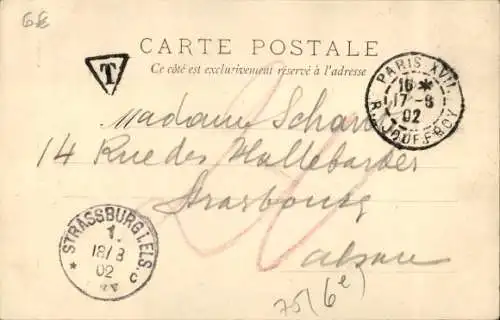 6€
CARTE POSTALE
Ce côté est exclusivement réservé à l'adresse
T
PARIS XVII
16 *
17-8
02
R. JOUFFROY
Madame
14 Rue des Hallebardes
Strasbourg
Alsace
STRASSBURG I. ELS.
1.
18/8
02
* c
20
75 (6e)